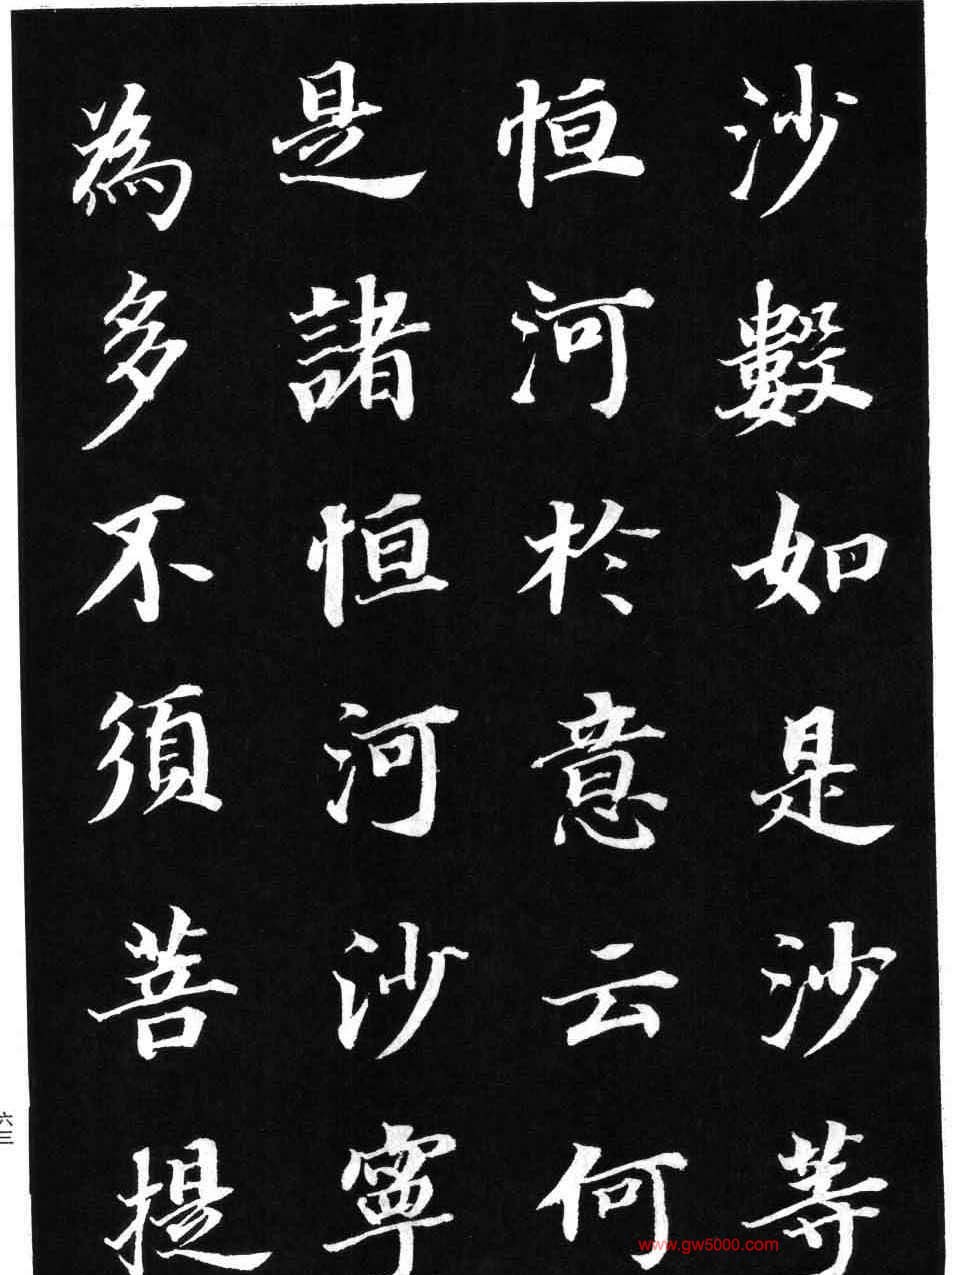 沙數如是沙等
恒河於意云何
是諸恒河沙寧
為多不須菩提
六三
www.gw5000.com